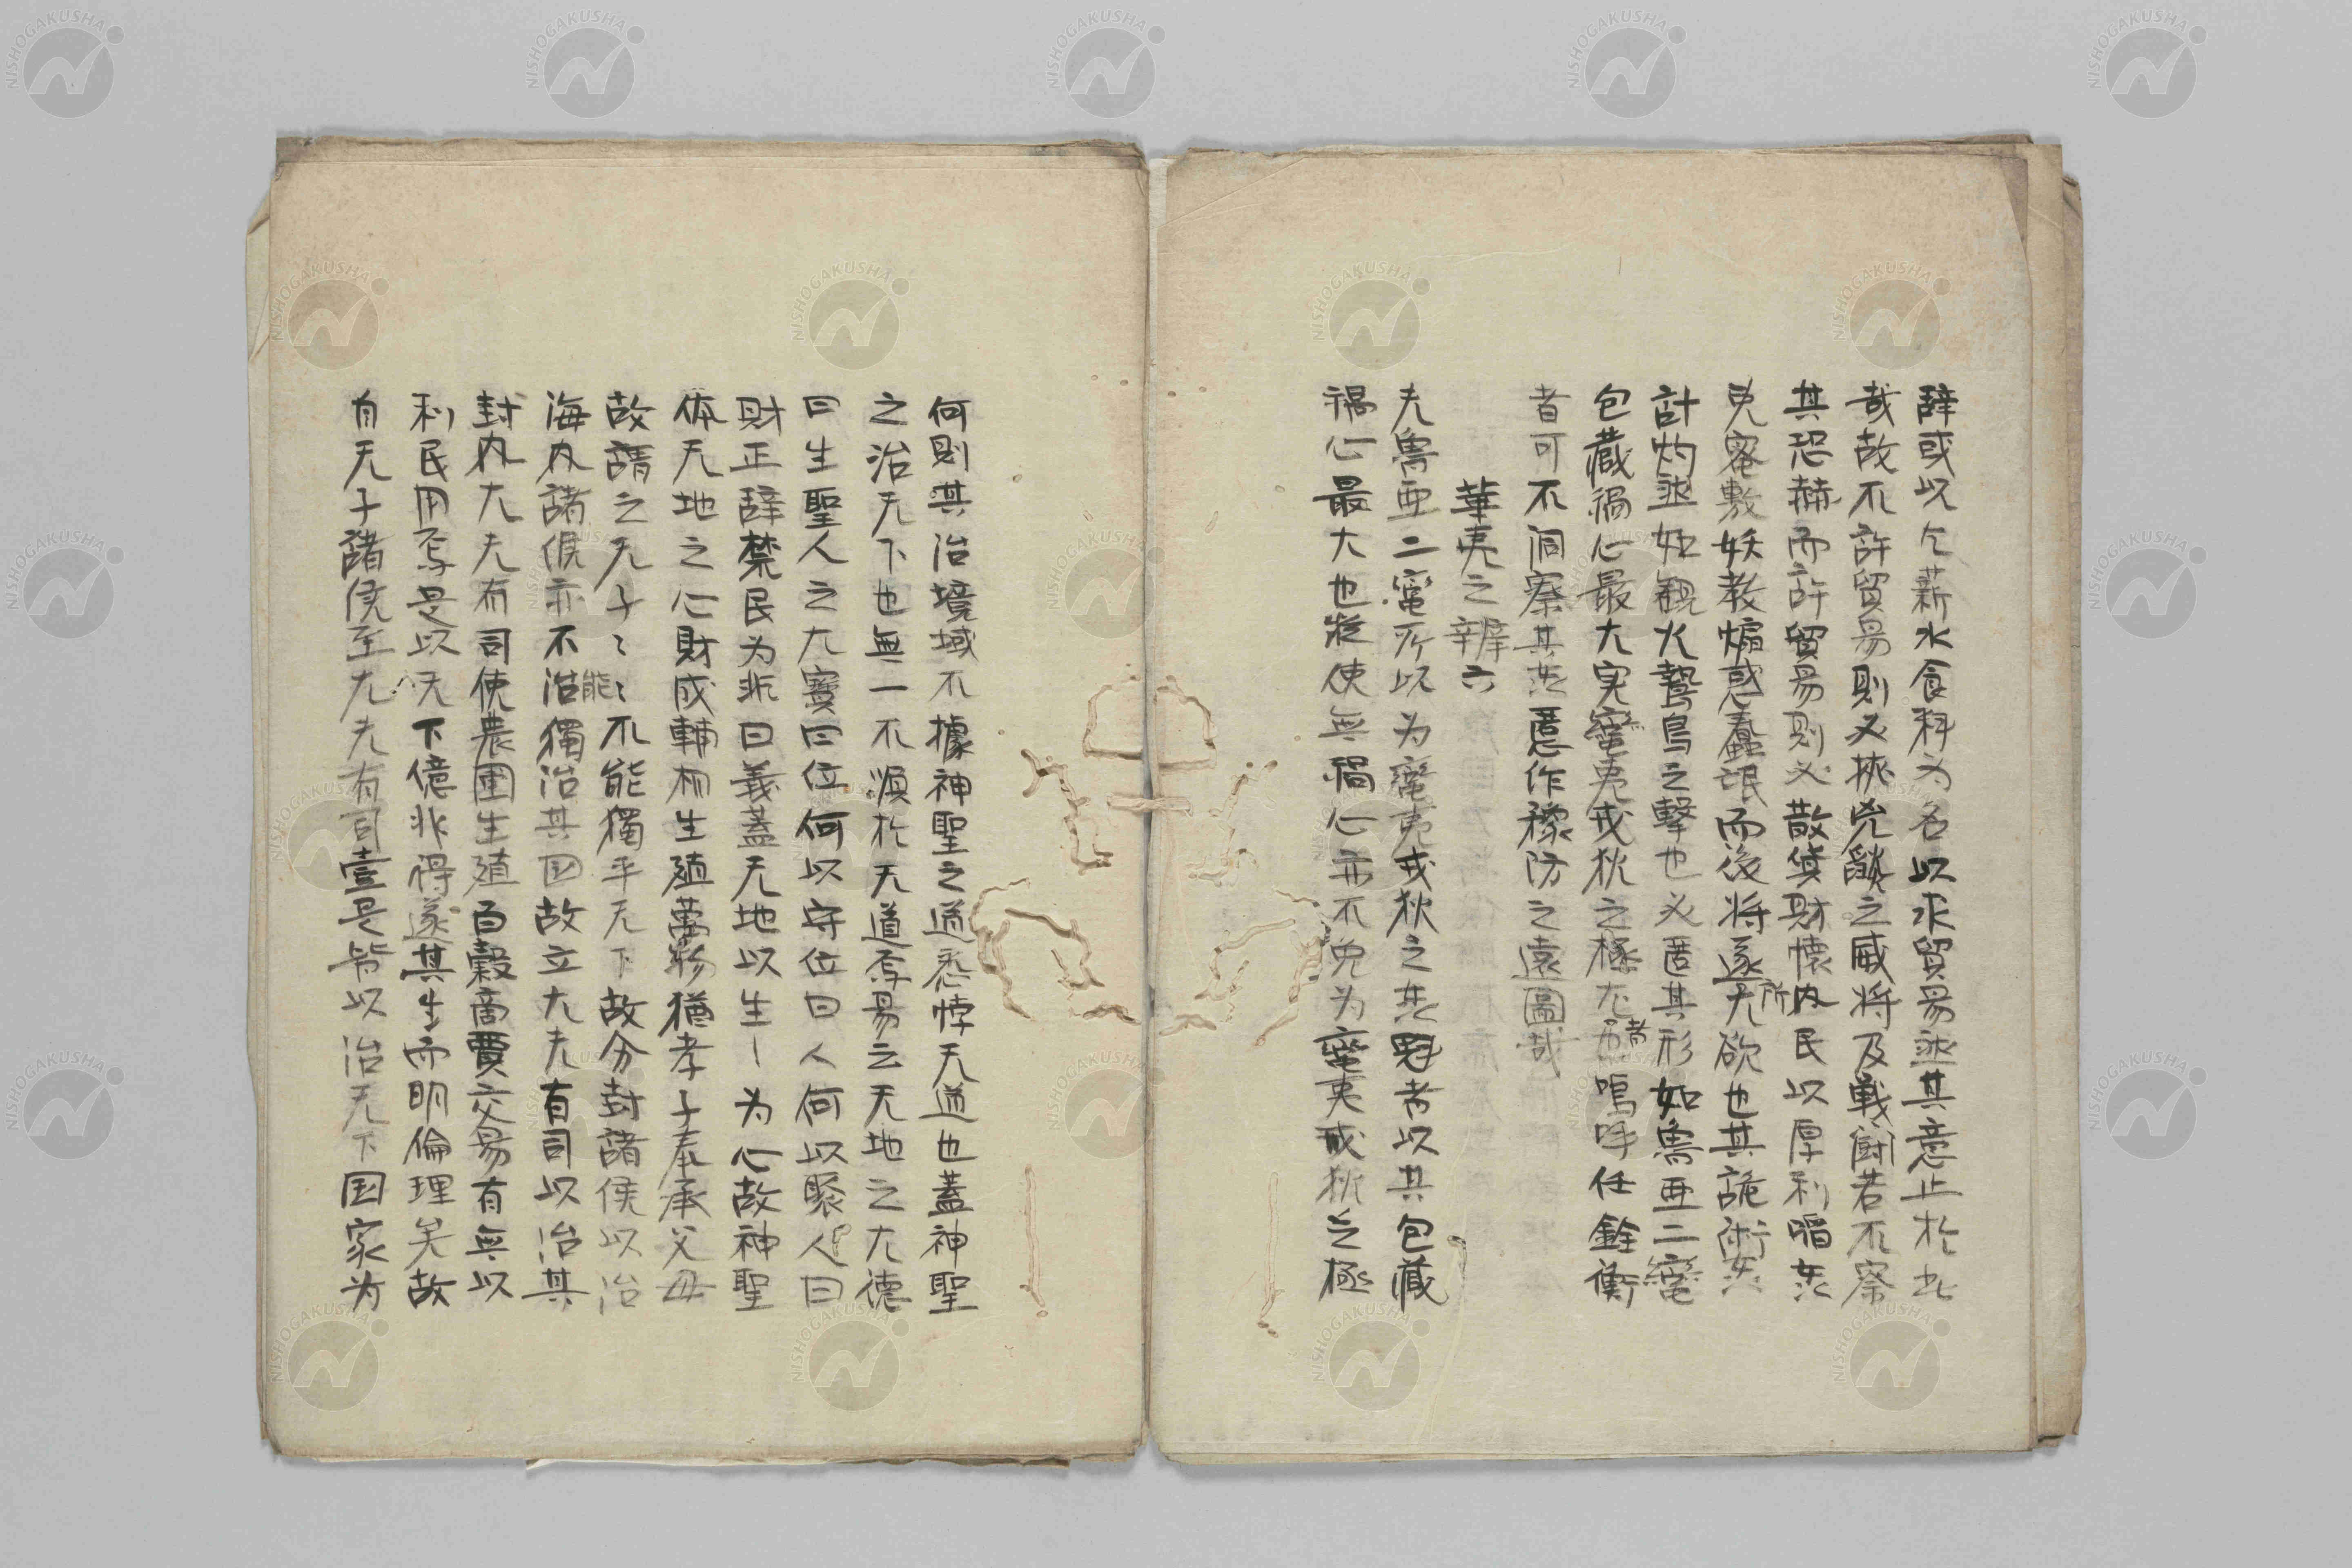 辞或以乞薪水食料为名以求貿易盗其意止於此
哉故不許貿易則必挾兇談之威将及戰闘若不察
其恐赫而許貿易則必散貨財懐内民以厚利啗羔
兇蜜敷妖教煽惑蠢氓而後将逐尤所欲也其詭術
計灼盗如観火鷙鳥之撃也必匿其形如魯亜二蛮
包蔵禍心最大実蛮夷戎狄之極尤者嗚呼任銓衡
者可不洞察其慝作稼防之遠圖哉
華夷之辨六
夫魯亜二蛮所以为蛮夷戎狄之魁者以其包蔵
禍心最大也縦使無禍心亦不免为蛮夷戎狄之極
何則其治境域不據神聖之道悉悖天道也蓋神聖
之治天下也無一不順於天道焉易云天地之大德
曰生聖人之大寶曰位何以守位曰人何以聚人曰
財正辞禁民为非曰義蓋天地以生〡为心故神聖
体天地之心財成輔相生殖萬物猶孝子奉承父母
故謂之天子〻〻能不能獨平天下故分封諸侯以治
海内諸侯亦不治獨治其国故立大夫有司以治其
封内大夫有司使農圃生殖百穀商賈交易有無以
利民用焉是以天下億兆得遂其生而明倫理矣故
自天子諸侯至大夫有司壹是皆以治天下国家为
NISHOGAKUSHA